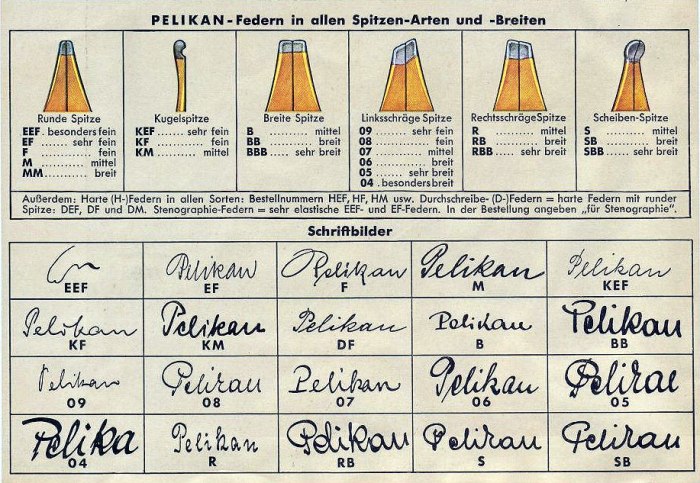 PELIKAN-Federn in allen Spitzen-Arten und -Breiten
Runde Spitze
EEF . besonders fein
EF ...... sehr fein
F .............. fein
M .......... mittel
MM ......... breit
Kugelspitze
KEF .... sehr fein
KF .......... fein
KM ....... mittel
Breite Spitze
B .......... mittel
BB .......... breit
BBB ... sehr breit
Linksschräge Spitze
09 ........ sehr fein
08 .............. fein
07 ............ mittel
06 ............. breit
05 ...... sehr breit
04 . besonders breit
Rechtsschräge Spitze
R .......... mittel
RB .......... breit
RBB ... sehr breit
Scheiben-Spitze
S .......... mittel
SB .......... breit
SBB ... sehr breit
Außerdem: Harte (H-)Federn in allen Sorten: Bestellnummern HEF, HF, HM usw. Durchschreibe- (D-)Federn = harte Federn mit runder
Spitze: DEF, DF und DM. Stenographie-Federn = sehr elastische EEF- und EF-Federn. In der Bestellung angeben „für Stenographie".
Schriftbilder
EEF
Pelikan
EF
Pelikan
F
Pelikan
M
Pelikan
KEF
Pelikan
KF
Pelikan
KM
Pelikan
DF
Pelikan
B
Pelikan
BB
Pelikan
09
Pelikan
08
Pelikan
07
Pelikan
06
Pelikan
05
Pelika
04
Pelikan
R
Pelikan
RB
Pelikan
S
Pelikan
SB